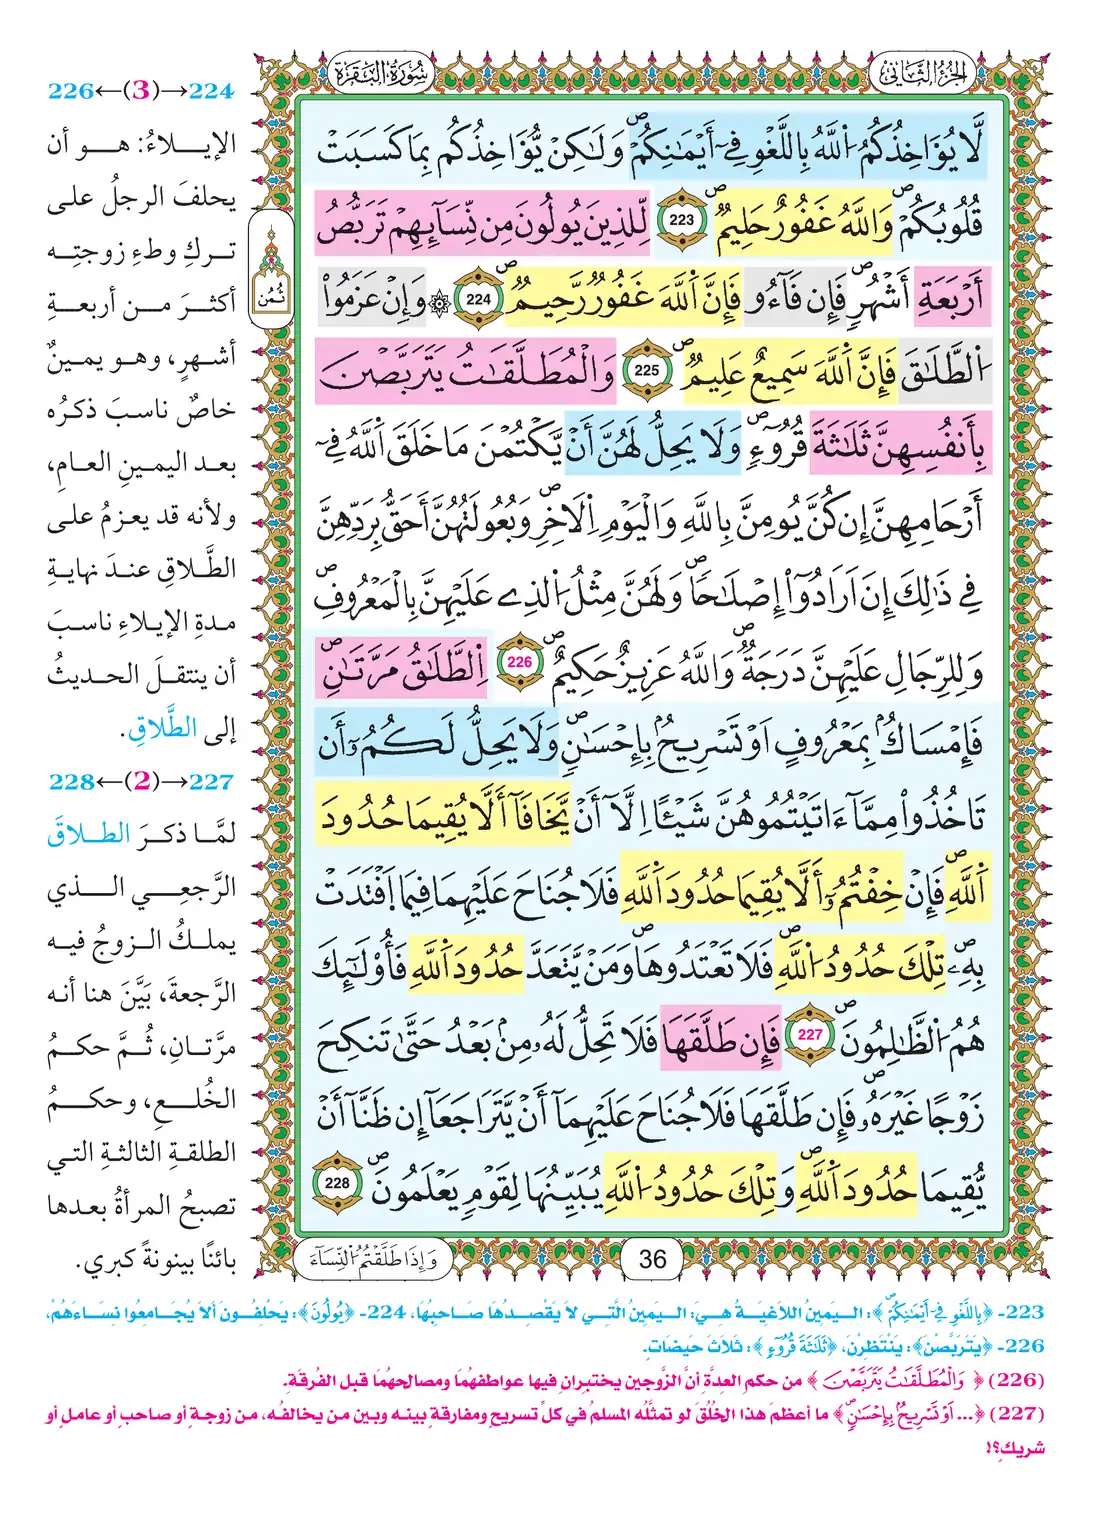 الجزء الثاني
سورة البقرة
لَّا يُؤَاخِذُكُمُ اُ۬للَّهُ بِاللَّغْوِ فِے أَيْمَٰنِكُمْ وَلَٰكِنْ يُّؤَاخِذُكُم بِمَا كَسَبَتْ
قُلُوبُكُمْ وَاللَّهُ غَفُورٌ حَلِيمٌ 223 لِّلذِينَ يُولُونَ مِن نِّسَآئِهِمْ تَرَبُّصُ
أَرْبَعَةِ أَشْهُرٖ فَإِن فَآءُو فَإِنَّ اَ۬للَّهَ غَفُورٌ رَّحِيمٌ 224 ۞ وَإِنْ عَزَمُواْ
اُ۬لطَّلَٰقَ فَإِنَّ اَ۬للَّهَ سَمِيعٌ عَلِيمٌ 225 وَالْمُطَلَّقَٰتُ يَتَرَبَّصْنَ
بِأَنفُسِهِنَّ ثَلَٰثَةَ قُرُوٓءٖ وَلَا يَحِلُّ لَهُنَّ أَنْ يَّكْتُمْنَ مَا خَلَقَ اَ۬للَّهُ فِےٓ
أَرْحَامِهِنَّ إِن كُنَّ يُومِنَّ بِاللَّهِ وَالْيَوْمِ اِ۬لَاخِرِ وَبُعُولَتُهُنَّ أَحَقُّ بِرَدِّهِنَّ
فِے ذَٰلِكَ إِنَ اَرَادُوٓاْ إِصْلَٰحاٗ وَلَهُنَّ مِثْلُ اُ۬لذِے عَلَيْهِنَّ بِالْمَعْرُوفِ
وَلِلرِّجَالِ عَلَيْهِنَّ دَرَجَةٌ وَاللَّهُ عَزِيزٌ حَكِيمٌ 226 اِ۬لطَّلَٰقُ مَرَّتَٰنِ
فَإِمْسَاكُۢ بِمَعْرُوفٍ اَوْ تَسْرِيحُۢ بِإِحْسَٰنٖ وَلَا يَحِلُّ لَكُمُۥٓ أَن
تَاخُذُواْ مِمَّآ ءَاتَيْتُمُوهُنَّ شَيْـًٔا اِلَّآ أَنْ يَّخَافَآ أَلَّا يُقِيمَا حُدُودَ
اَ۬للَّهِ فَإِنْ خِفْتُمُۥٓ أَلَّا يُقِيمَا حُدُودَ اَ۬للَّهِ فَلَا جُنَاحَ عَلَيْهِمَا فِيمَا اَ۪فْتَدَتْ
بِهِۦ تِلْكَ حُدُودُ اُ۬للَّهِ فَلَا تَعْتَدُوهَا وَمَنْ يَّتَعَدَّ حُدُودَ اَ۬للَّهِ فَأُوْلَٰٓئِكَ
هُمُ اُ۬لظَّٰلِمُونَ 227 فَإِن طَلَّقَهَا فَلَا تَحِلُّ لَهُۥ مِنۢ بَعْدُ حَتَّىٰ تَنكِحَ
زَوْجاً غَيْرَهُۥ فَإِن طَلَّقَهَا فَلَا جُنَاحَ عَلَيْهِمَآ أَنْ يَّتَرَاجَعَآ إِن ظَنَّآ أَنْ
يُّقِيمَا حُدُودَ اَ۬للَّهِ وَتِلْكَ حُدُودُ اُ۬للَّهِ يُبَيِّنُهَا لِقَوْمٖ يَعْلَمُونَ 228
ثُمُن
وَإِذَا طَلَّقْتُمُ اُ۬لنِّسَآءَ
36
224→(3)←226
الإيلاءُ: هو أن
يحلفَ الرجلُ على
تركِ وطءِ زوجتِه
أكثرَ من أربعةِ
أشهرٍ، وهو يمينٌ
خاصٌ ناسبَ ذكرُه
بعد اليمينِ العامِ،
ولأنه قد يعزمُ على
الطَّلاقِ عندَ نهايةِ
مدةِ الإيلاءِ ناسبَ
أن ينتقلَ الحديثُ
إلى الطَّلاقِ.
227→(2)←228
لمَّا ذكرَ الطلاقَ
الرَّجعي الذي
يملكُ الزوجُ فيه
الرَّجعةَ، بَيَّنَ هنا أنه
مرَّتانِ، ثُمَّ حكمُ
الخُلعِ، وحكمُ
الطلقةِ الثالثةِ التي
تصبحُ المرأةُ بعدها
بائنًا بينونةً كبرى.
223- ﴿بِاللَّغْوِ فِے أَيْمَٰنِكُمْ﴾: اليمينُ اللاغيةُ هِيَ: اليمينُ الَّتِي لا يَقْصِدُهَا صَاحِبُهَا، 224- ﴿يُولُونَ﴾: يَحْلِفُونَ ألا يُجَامِعُوا نِسَاءَهُمْ،
226- ﴿يَتَرَبَّصْنَ﴾: يَنْتَظِرْنَ، ﴿ثَلَٰثَةَ قُرُوٓءٖ﴾: ثَلاثَ حَيْضَاتٍ.
(226) ﴿وَالْمُطَلَّقَٰتُ يَتَرَبَّصْنَ﴾ من حكمِ العدةِ أنَّ الزَّوجين يختبرانِ فيها عواطفهُما ومصالحهُما قبل الفُرقةِ.
(227) ﴿... اَوْ تَسْرِيحُۢ بِإِحْسَٰنٖ﴾ ما أعظمَ هذا الخُلُقَ لو تمثَّلَه المسلمُ في كلِّ تسريحٍ ومفارقةٍ بينه وبين من يخالفُه، من زوجةٍ أو صاحبٍ أو عاملٍ أو
شريكٍ؟!